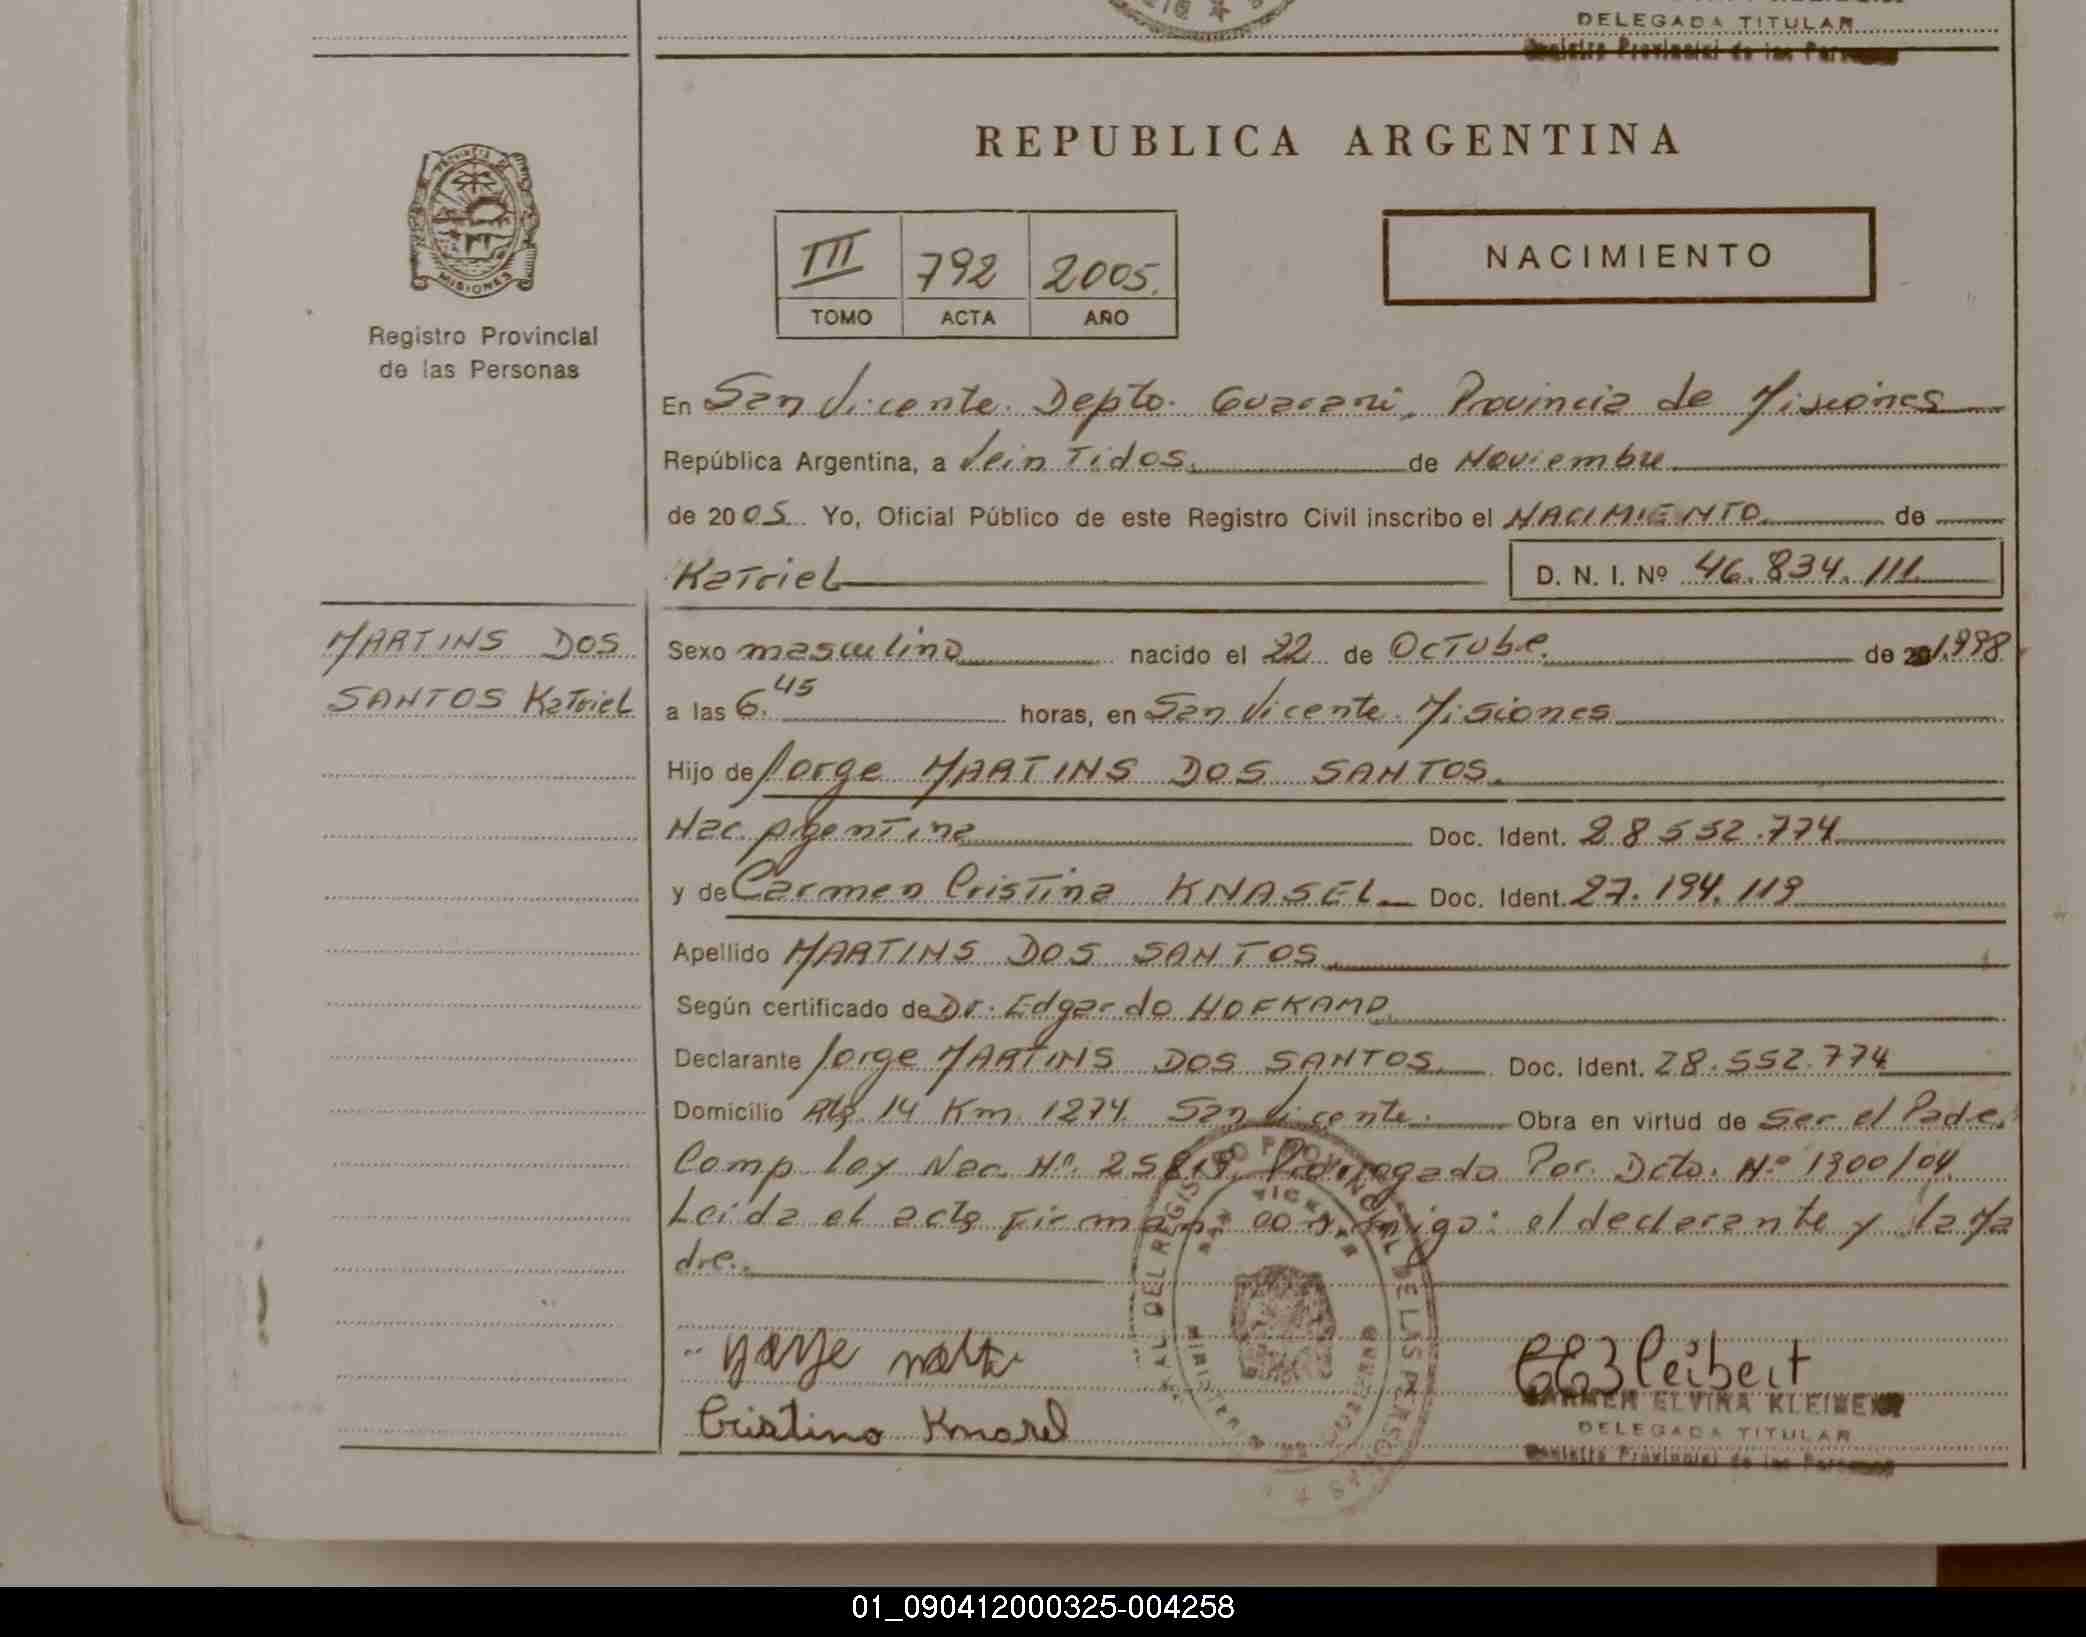 DELEGADA TITULAR
Registro Provincial de las Personas
REPUBLICA ARGENTINA
PROVINCIA DE
MISIONES
Registro Provincial
de las Personas
III 792 2005.
TOMO ACTA AÑO
NACIMIENTO
En San Vicente. Depto. Guarani, Provincia de Misiones
República Argentina, a Vein Tidos. de Noviembre
de 2005. Yo, Oficial Público de este Registro Civil inscribo el NACIMIENTO de
Katriel D. N. I. Nº 46.834.111
MARTINS DOS
SANTOS Katriel
Sexo masculino nacido el 22 de Octubre. de 20 1.998
a las 6.45 horas, en San Vicente. Misiones
Hijo de Jorge MARTINS DOS SANTOS.
Nac. Argentina Doc. Ident. 28.552.774
y de Carmen Cristina KNASEL Doc. Ident. 27.194.119
Apellido MARTINS DOS SANTOS
Según certificado de Dr. Edgardo HOFKAMP
Declarante Jorge MARTINS DOS SANTOS. Doc. Ident. 28.552.774
Domicilio Rta. 14 Km. 1274. San Vicente. Obra en virtud de Ser el Padre.
Comp. Ley Nac. Nº. 25819. Prorrogada Por. Dcto. Nº 1300/04
Leida el acta firman conmigo: el declarante y la Ma
dre.
Cristina Knasel
CARMEN ELVIRA
DELEGADA TITULAR
Registro Provincial de las Personas
01_090412000325-004258